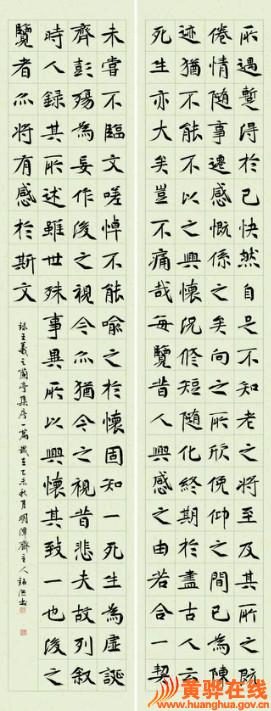 所遇暫得於己快然自足不知老之將至及其所之既
倦情隨事遷感慨係之矣向之所欣俛仰之間已為陳
迹猶不能不以之興懷況修短隨化終期於盡古人云
死生亦大矣豈不痛哉每覽昔人興感之由若合一契
未嘗不臨文嗟悼不能喻之於懷固知一死生為虛誕
齊彭殤為妄作後之視今亦猶今之視昔悲夫故列敘
時人録其所述雖世殊事異所以興懷其致一也後之
覽者亦將有感於斯文
録王羲之蘭亭集序一篇歲在乙未秋月明齋主人書
黄骅在线
www.huanghua.gov.cn